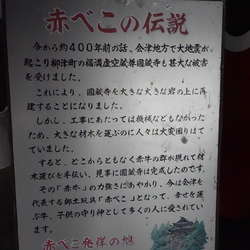 赤べこの伝説
今から約400年前の話、会津地方で大地震が
起こり柳津町の福満虚空蔵尊圓蔵寺も甚大な被害
を受けました。
これにより、圓蔵寺を大きな大きな岩の上に再
建することになりました。
しかし、工事にあたっては機械などもなかった
ため、大きな材木を運ぶのに人々は大変困りはて
ていました。
すると、どこからともなく赤牛の群が現れて材
木運びを手伝い、見事に圓蔵寺は完成したのです。
その「赤牛」の力強さにあやかり、今は会津を代
表する郷土玩具「赤べこ」となって、幸せを運
ぶ牛、子供の守り神として多くの人に愛されてい
ます。
赤べこ発祥の地